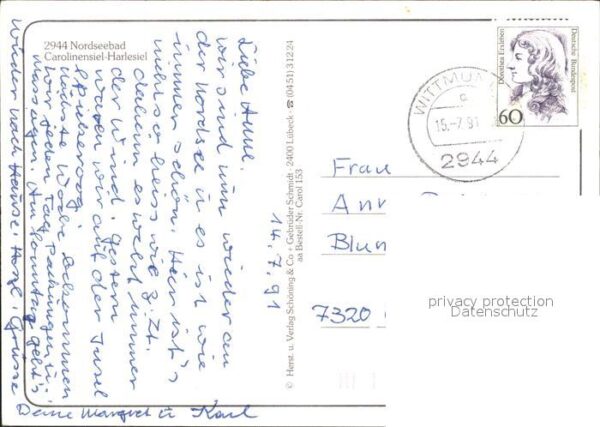 2944 Nordseebad
Carolinensiel-Harlesiel
14.7.91
Liebe Anne.
Wir sind nun wieder an
der Nordsee u es ist wie
immer schön. Hier ist's
nicht so heiss wie z. Zt.
daheim es weht immer
der Wind. Gestern
waren wir auf der Insel
Spiekeroog.
Nächste Woche bekommen
wir jeden Tag Packungen u.
Massagen. Am Sonntag geht's
wieder nach Hause. Herzl. Grüsse
Deine Margret u Karl
© Herst. u. Verlag Schöning & Co + Gebrüder Schmidt · 2400 Lübeck · ☎ (0451) 31224
aa Bestell-Nr. Carol 153
Dorothea Erxleben
Deutsche Bundespost
60
WITTMUN
c
15.-7.91
2944
Frau
Ann
Blum
7320
privacy protection
Datenschutz